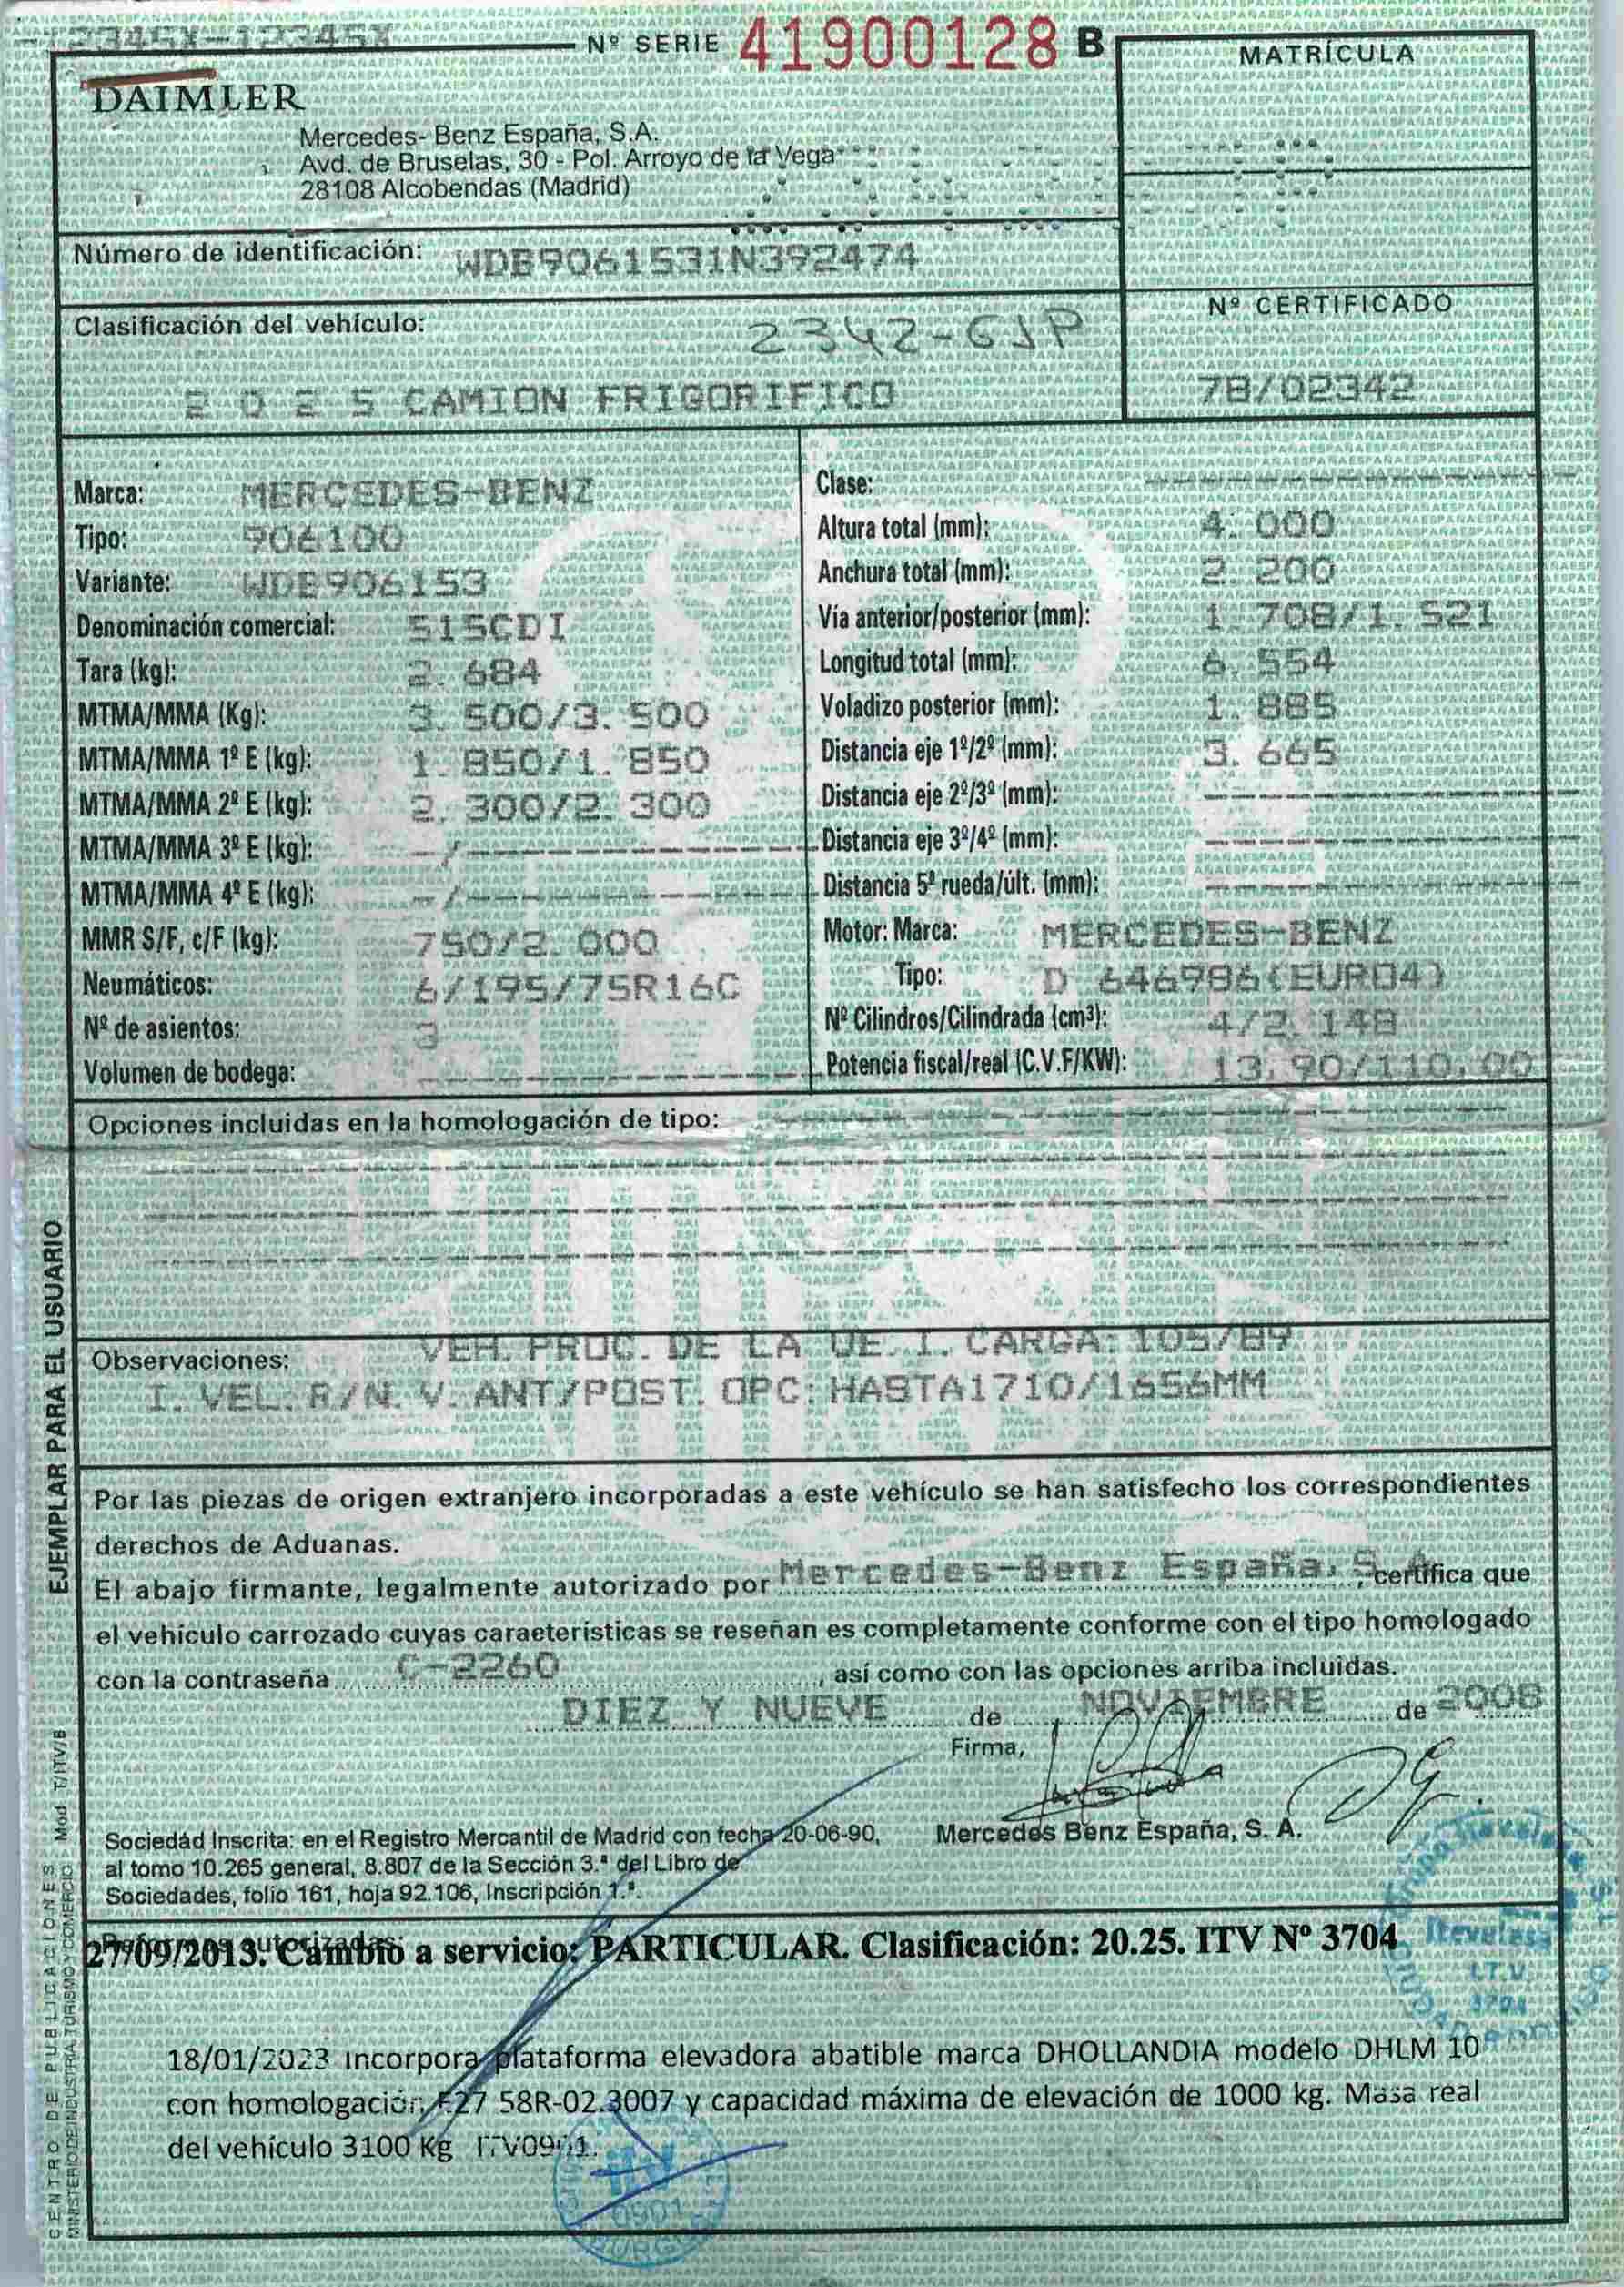 -12345X-12345X
Nº SERIE 41900128 B
MATRÍCULA
DAIMLER
Mercedes- Benz España, S.A.
Avd. de Bruselas, 30 - Pol. Arroyo de la Vega
28108 Alcobendas (Madrid)
Número de identificación: WDB9061531N392474
Clasificación del vehículo: 2342-GJP
2 0 2 5 CAMION FRIGORIFICO
Nº CERTIFICADO
7B/02342
Marca: MERCEDES-BENZ
Tipo: 906100
Variante: WDB906153
Denominación comercial: 515CDI
Tara (kg): 2. 684
MTMA/MMA (Kg): 3. 500/3. 500
MTMA/MMA 1º E (kg): 1. 850/1. 850
MTMA/MMA 2º E (kg): 2. 300/2. 300
MTMA/MMA 3º E (kg): -/-----------
MTMA/MMA 4º E (kg): -/-----------
MMR S/F, c/F (kg): 750/2. 000
Neumáticos: 6/195/75R16C
Nº de asientos: 3
Volumen de bodega: -------------
Clase: -------------
Altura total (mm): 4. 000
Anchura total (mm): 2. 200
Vía anterior/posterior (mm): 1. 708/1. 521
Longitud total (mm): 6. 554
Voladizo posterior (mm): 1. 885
Distancia eje 1º/2º (mm): 3. 665
Distancia eje 2º/3º (mm): -----------
Distancia eje 3º/4º (mm): -----------
Distancia 5ª rueda/últ. (mm): -----------
Motor: Marca: MERCEDES-BENZ
Tipo: D 646986(EURO4)
Nº Cilindros/Cilindrada (cm³): 4/2. 148
Potencia fiscal/real (C.V.F/KW): 13,90/110,00
Opciones incluidas en la homologación de tipo:
Observaciones: VEH. PROC. DE LA UE. I. CARGA: 105/89
I. VEL. R/N. V. ANT/POST. OPC: HASTA1710/1656MM
Por las piezas de origen extranjero incorporadas a este vehículo se han satisfecho los correspondientes
derechos de Aduanas.
El abajo firmante, legalmente autorizado por Mercedes-Benz España, S.A, certifica que
el vehículo carrozado cuyas características se reseñan es completamente conforme con el tipo homologado
con la contraseña C-2260, así como con las opciones arriba incluidas.
DIEZ Y NUEVE de NOVIEMBRE de 2008
Firma,
Mercedes Benz España, S. A.
Sociedad Inscrita: en el Registro Mercantil de Madrid con fecha 20-06-90,
al tomo 10.265 general, 8.807 de la Sección 3.ª del Libro de
Sociedades, folio 161, hoja 92.106, Inscripción 1.ª.
Reformas autorizadas:
27/09/2013. Cambio a servicio: PARTICULAR. Clasificación: 20.25. ITV Nº 3704
Itevelesa
I.T.V.
3704
18/01/2023 incorpora plataforma elevadora abatible marca DHOLLANDIA modelo DHLM 10
con homologación E27 58R-02.3007 y capacidad máxima de elevación de 1000 kg. Masa real
del vehículo 3100 Kg ITV0901.
itv
0901
BURGOS
EJEMPLAR PARA EL USUARIO
Mod T/ITV/B
CENTRO DE PUBLICACIONES
MINISTERIO DE INDUSTRIA, TURISMO Y COMERCIO